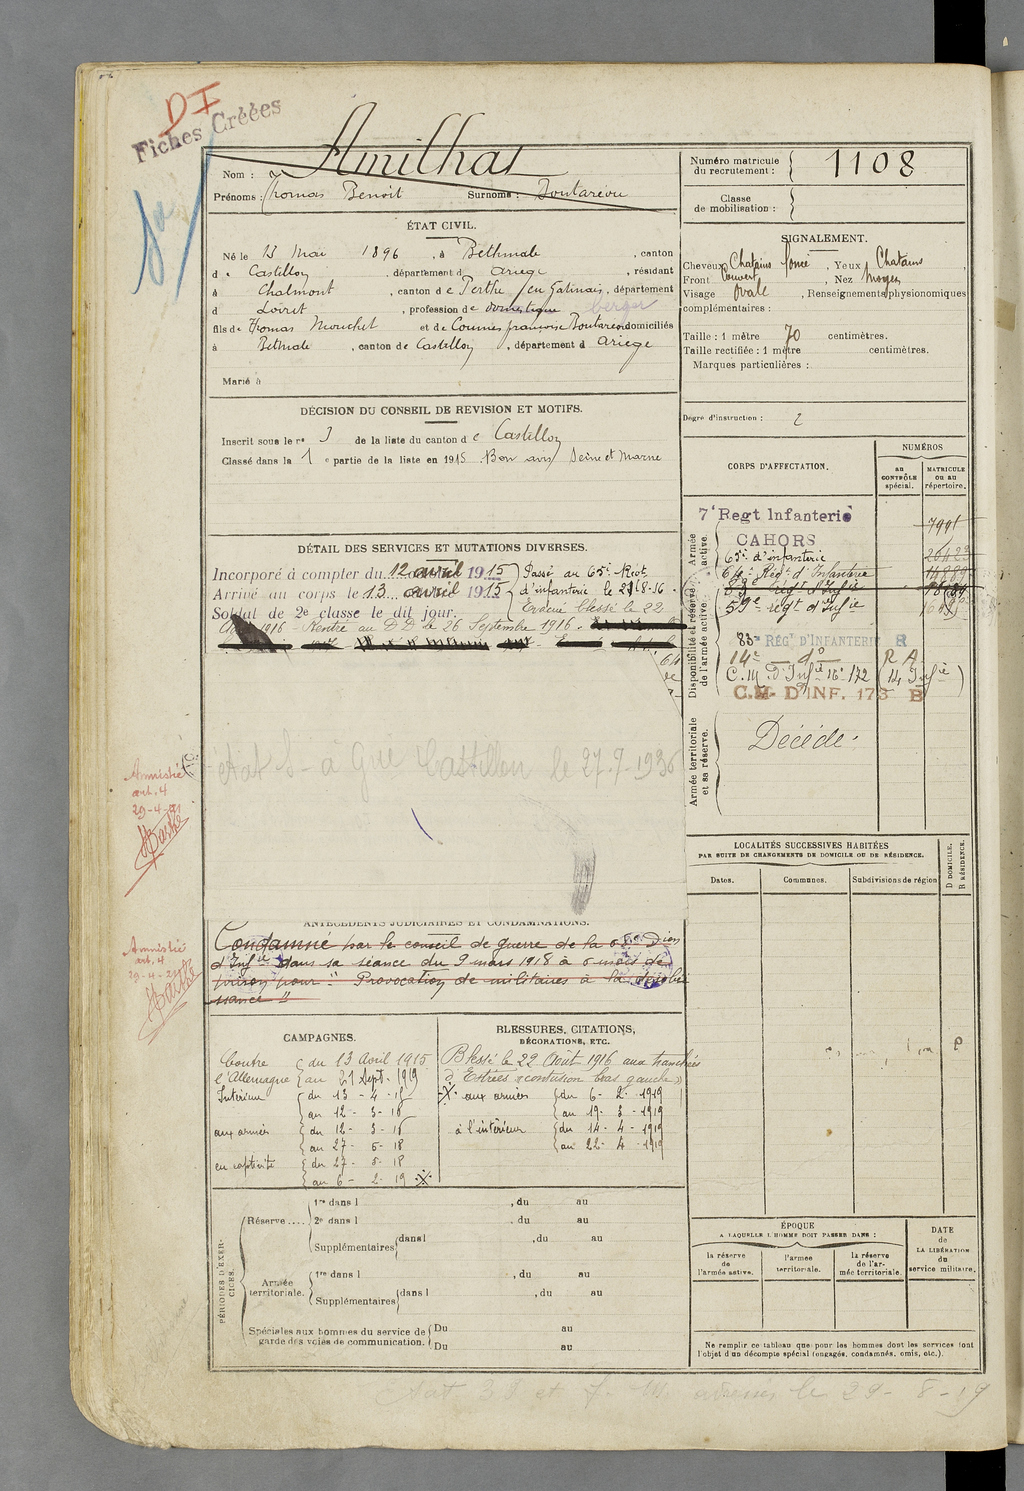 DI
Fiches Créées
Amilhat
Nom :
Prénoms : Thomas Benoit Surnoms :
Numéro matricule du recrutement : 1108
Classe de mobilisation :
ÉTAT CIVIL.
Né le 13 Mai 1896, à Bethmale, canton
de Castillon, département d Ariège, résidant
à Chalmont, canton de Perthe en Gatinais, département
d Loiret, profession de domestique berger
fils de Thomas Mouchet et de Françoise domiciliés
à Bethmale, canton de Castillon, département d Ariège
Marié à
SIGNALEMENT.
Cheveux Chatains foncé, Yeux Chatains,
Front Couvert, Nez Moyen
Visage Ovale, Renseignements physionomiques
complémentaires :
Taille : 1 mètre 70 centimètres.
Taille rectifiée : 1 mètre centimètres.
Marques particulières :
Degré d'instruction : 2
DÉCISION DU CONSEIL DE REVISION ET MOTIFS.
Inscrit sous le no 3 de la liste du canton de Castillon
Classé dans la 1 e partie de la liste en 1915 Bon avis Seine et Marne
CORPS D'AFFECTATION.
NUMÉROS
au CONTRÔLE spécial.
MATRICULE ou au répertoire.
Armée active.
7e Regt Infanterie
CAHORS
65e d'infanterie
64e Régt d'Infanterie
Disponibilité et réserve de l'armée active.
59e régt d'Infie
83e RÉGT D'INFANTERIE R
14e do RA
C.M. D'Infie 16e 172 (14 Infie)
C.M. D'INF. 173 B
Armée territoriale et sa réserve.
Décédé
DÉTAIL DES SERVICES ET MUTATIONS DIVERSES.
Incorporé à compter du 12 avril 1915
Arrivé au corps le 13 avril 1915
Soldat de 2e classe le dit jour.
Passé au 65e Regt
d'infanterie le 21-8-16
Evacué blessé le 22
Août 1916 - Rentré au DD le 26 Septembre 1916.
Castillon le 27.7.1936
Amnistié
art. 4
29-4-21
Barthe
LOCALITÉS SUCCESSIVES HABITÉES
PAR SUITE DE CHANGEMENTS DE DOMICILE OU DE RÉSIDENCE.
Dates.
Communes.
Subdivisions de région
D DOMICILE.
R RÉSIDENCE.
ANTÉCÉDENTS JUDICIAIRES ET CONDAMNATIONS.
Condamné par le conseil de guerre de la Dion
d'Infie dans sa séance du 9 mars 1918 à 6 mois de
prison pour "Provocation de militaires à la désobéis
sance"
Amnistié
art. 4
29-4-21
Barthe
CAMPAGNES.
Contre l'Allemagne
du 13 Avril 1915
au 21 Sept. 1919
Intérieur
du 13 - 4 - 15
au 12 - 3 - 16
aux armées
du 12 - 3 - 16
au 27 - 5 - 18
en captivité
du 27 - 5 - 18
au 6 - 2 - 19
BLESSURES, CITATIONS,
DÉCORATIONS, ETC.
Blessé le 22 Août 1916 aux tranchées
d'Estrées "contusion bras gauche"
aux armées
du 6 - 2 - 1919
au 19 - 3 - 1919
à l'intérieur
du 14 - 4 - 1919
au 22 - 4 - 1919
PÉRIODES D'EXERCICES.
Réserve ....
1re dans l , du au
2e dans l , du au
Supplémentaires dans l , du au
Armée territoriale.
1re dans l , du au
Supplémentaires dans l , du au
Spéciales aux hommes du service de
garde des voies de communication.
Du au
Du au
ÉPOQUE
A LAQUELLE L'HOMME DOIT PASSER DANS :
la réserve de l'armée active.
l'armée territoriale.
la réserve de l'armée territoriale.
DATE de LA LIBÉRATION du service militaire.
Ne remplir ce tableau que pour les hommes dont les services font
l'objet d'un décompte spécial (engagés, condamnés, omis, etc.).
le 29 - 8 - 19